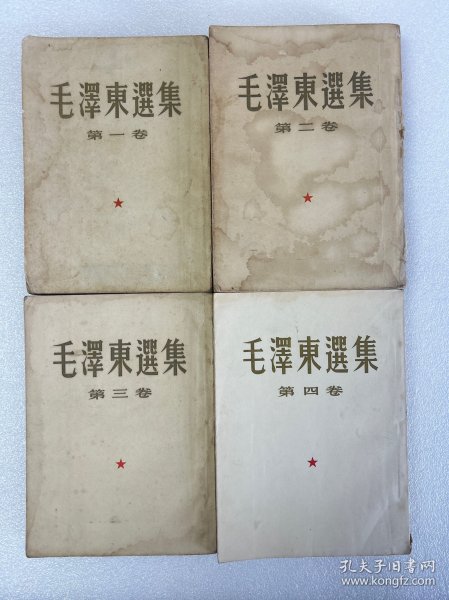 毛澤東選集
第一卷
毛澤東選集
第二卷
毛澤東選集
第三卷
毛澤東選集
第四卷
孔夫子旧书网
www.kongfz.com